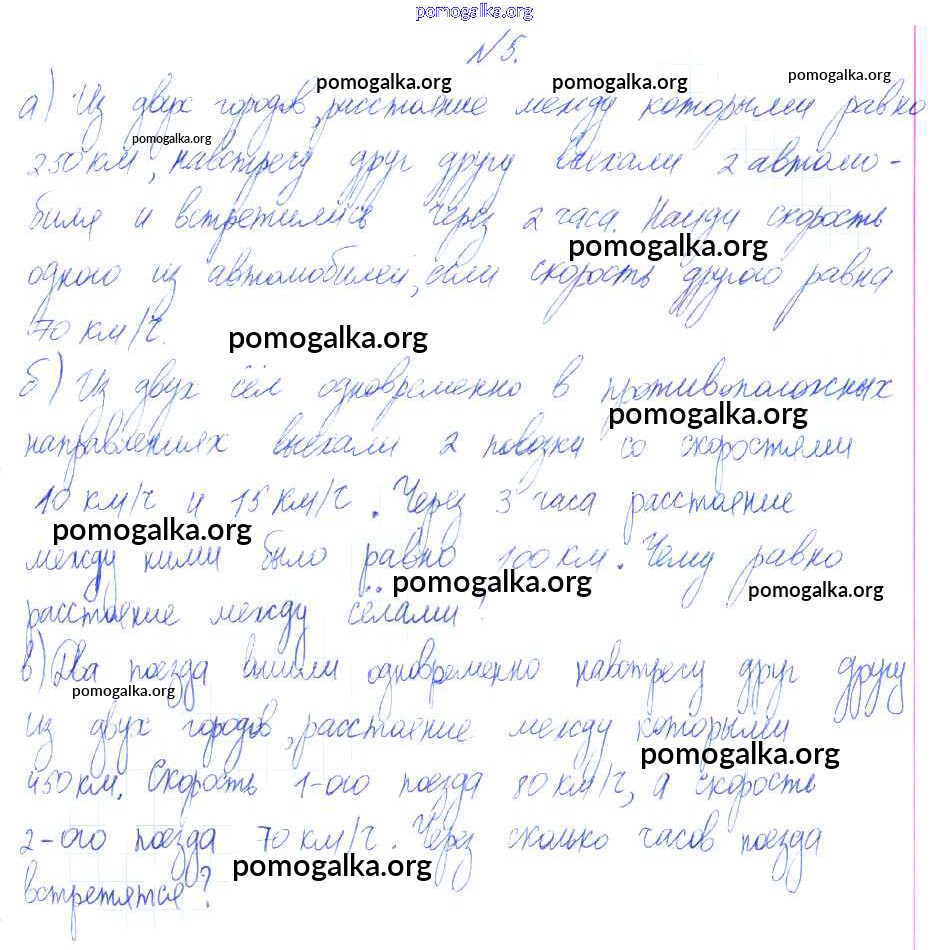 pomogalka.org
№5.
pomogalka.org pomogalka.org pomogalka.org
а) Из двух городов, расстояние между которыми равно
pomogalka.org
250 км, навстречу друг другу выехали 2 автомо-
биля и встретились через 2 часа. Найди скорость
pomogalka.org
одного из автомобилей, если скорость другого равна
70 км/ч.
pomogalka.org
б) Из двух сёл одновременно в противоположных
pomogalka.org
направлениях выехали 2 повозки со скоростями
10 км/ч и 15 км/ч. Через 3 часа расстояние
pomogalka.org
между ними было равно 100 км. Чему равно
pomogalka.org pomogalka.org
расстояние между сёлами?
в) Два поезда вышли одновременно навстречу друг другу
pomogalka.org
из двух городов, расстояние между которыми
pomogalka.org
450 км. Скорость 1-ого поезда 80 км/ч, а скорость
2-ого поезда 70 км/ч. Через сколько часов поезда
pomogalka.org
встретятся?